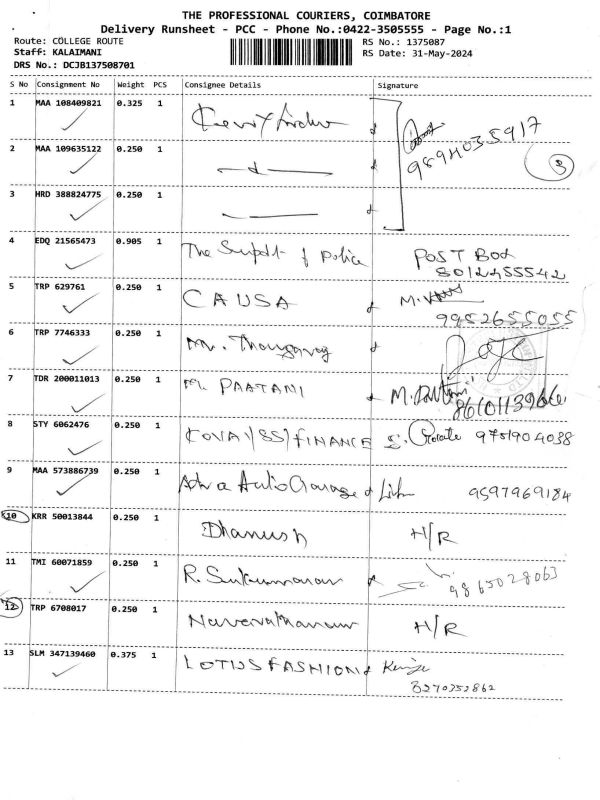 THE PROFESSIONAL COURIERS, COIMBATORE
Delivery Runsheet - PCC - Phone No.:0422-3505555 - Page No.:1
Route: COLLEGE ROUTE RS No.: 1375087
Staff: KALAIMANI RS Date: 31-May-2024
DRS No.: DCJB137508701
S No Consignment No Weight PCS Consignee Details Signature
1 MAA 108409821 0.325 1
9894035917
2 MAA 109635122 0.250 1
3
3 HRD 388824775 0.250 1
4 EDQ 21565473 0.905 1 The Supdt of Police POST BOX
8012455542
5 TRP 629761 0.250 1 CAUSA M.
9952655055
6 TRP 7746333 0.250 1 Mr.
7 TDR 200011013 0.250 1 M. PAATANI M.
8 STY 6062476 0.250 1 KOVAI/SS/FINANCE 9751904038
9 MAA 573886739 0.250 1 Auto Garage 9597969184
10 KRR 50013844 0.250 1 Dhanush H/R
11 TMI 60071859 0.250 1 R. Sukumaran 9865028063
12 TRP 6708017 0.250 1 H/R
13 SLM 347139460 0.375 1 LOTUS FASHION
8270352862